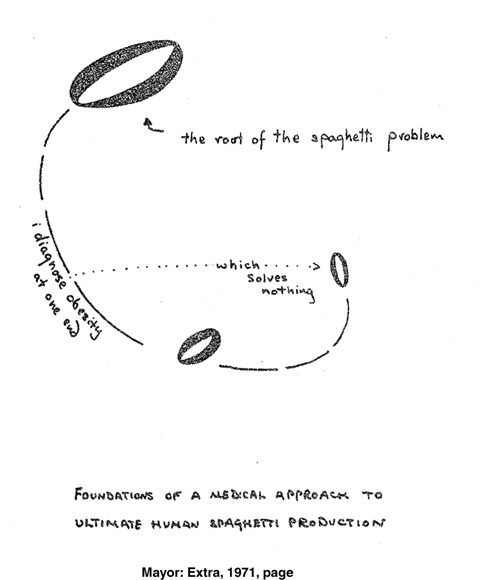 the root of the spaghetti problem
i diagnose obesity
at one end
which
solves
nothing
FOUNDATIONS OF A MEDICAL APPROACH TO
ULTIMATE HUMAN SPAGHETTI PRODUCTION
Mayor: Extra, 1971, page